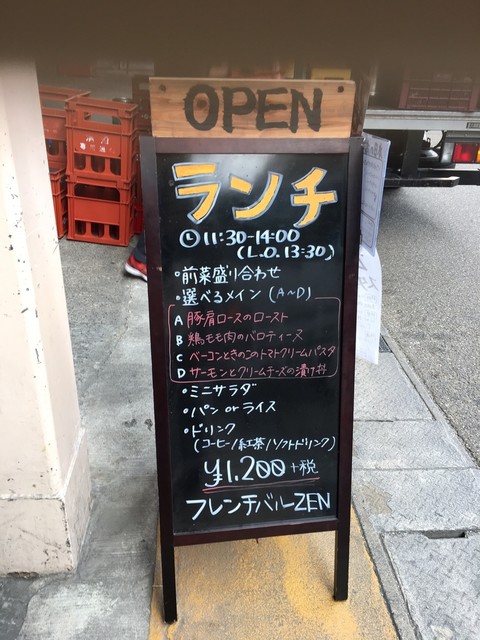 OPEN
ランチ
Ⓛ 11:30-14:00
(L.O. 13:30)
・前菜盛り合わせ
・選べるメイン (A~D)
A 豚肩ロースのロースト
B 鶏モモ肉のバロティーヌ
C ベーコンときのこのトマトクリームパスタ
D サーモンとクリームチーズの漬け丼
・ミニサラダ
・パン or ライス
・ドリンク
(コーヒー/紅茶/ソフトドリンク)
¥1,200 +税
フレンチバル ZEN